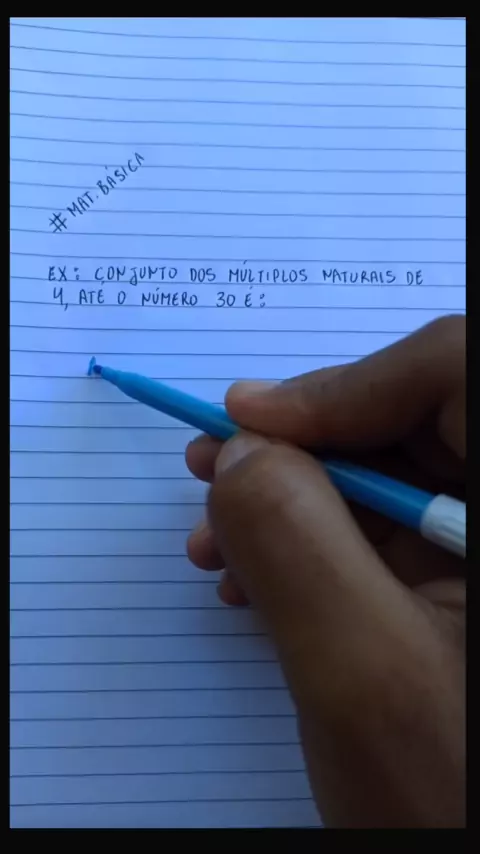 #MAT. BÁSICA
EX: CONJUNTO DOS MÚLTIPLOS NATURAIS DE
4, ATÉ O NÚMERO 30 É: